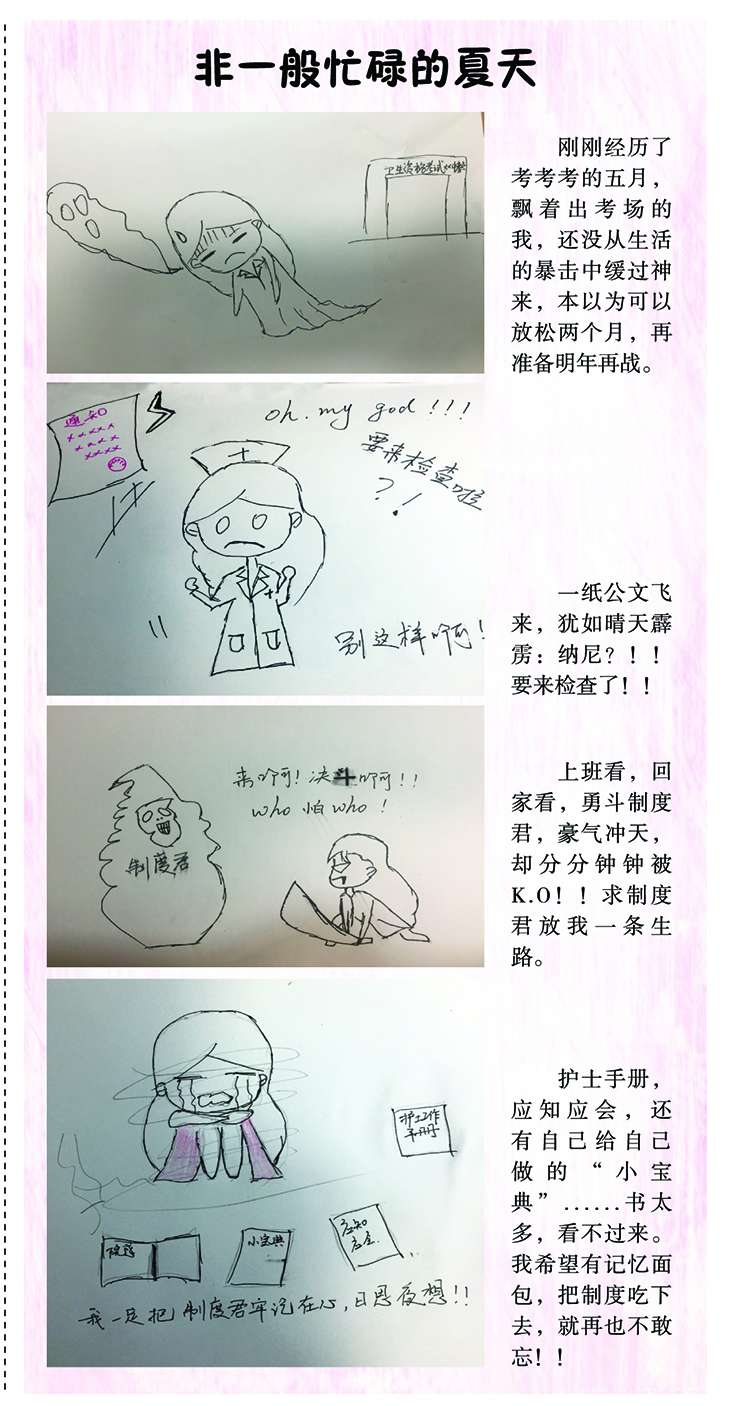 非一般忙碌的夏天
卫生资格考试
刚刚经历了
考考考的五月，
飘着出考场的
我，还没从生活
的暴击中缓过神
来，本以为可以
放松两个月，再
准备明年再战。
通知
×××××
××××
××××
oh. my god !!!
要来检查啦
?!
别这样啊!
一纸公文飞
来，犹如晴天霹
雳：纳尼？！！
要来检查了！！
来啊! 决斗啊!!
who 怕 who !
制度君
上班看，回
家看，勇斗制度
君，豪气冲天，
却分分钟钟被
K.O！！求制度
君放我一条生
路。
护工工作
手册
小宝典
应知
应会
我一定把制度君牢记在心，日思夜想!!
护士手册，
应知应会，还
有自己给自己
做的“小宝
典”......书太
多，看不过来。
我希望有记忆面
包，把制度吃下
去，就再也不敢
忘！！